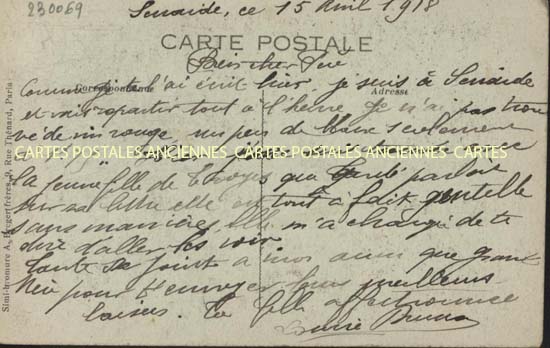 230069
Senaide, ce 15 Avril 1918
CARTE POSTALE
Bien cher Pué
Correspondance
Adresse
Comme je te l'ai écrit hier, je suis à Senaide
et vais repartir tout à l'heure Je n'ai pas trou
vé de vin rouge, un peu de blanc seulement
CARTES POSTALES ANCIENNES CARTES POSTALES ANCIENNES CARTES
la jeune fille de que parlait
sur sa lettre elle est tout à fait gentille
sans manières, elle m'a chargée de te
dire d'aller les voir
Tante se joint à moi ainsi que grand
père pour t'envoyer leurs meilleurs
baisers. Ta fille affectionnée
Simi-bromure A. Breger frères, 9, Rue Thénard, Paris